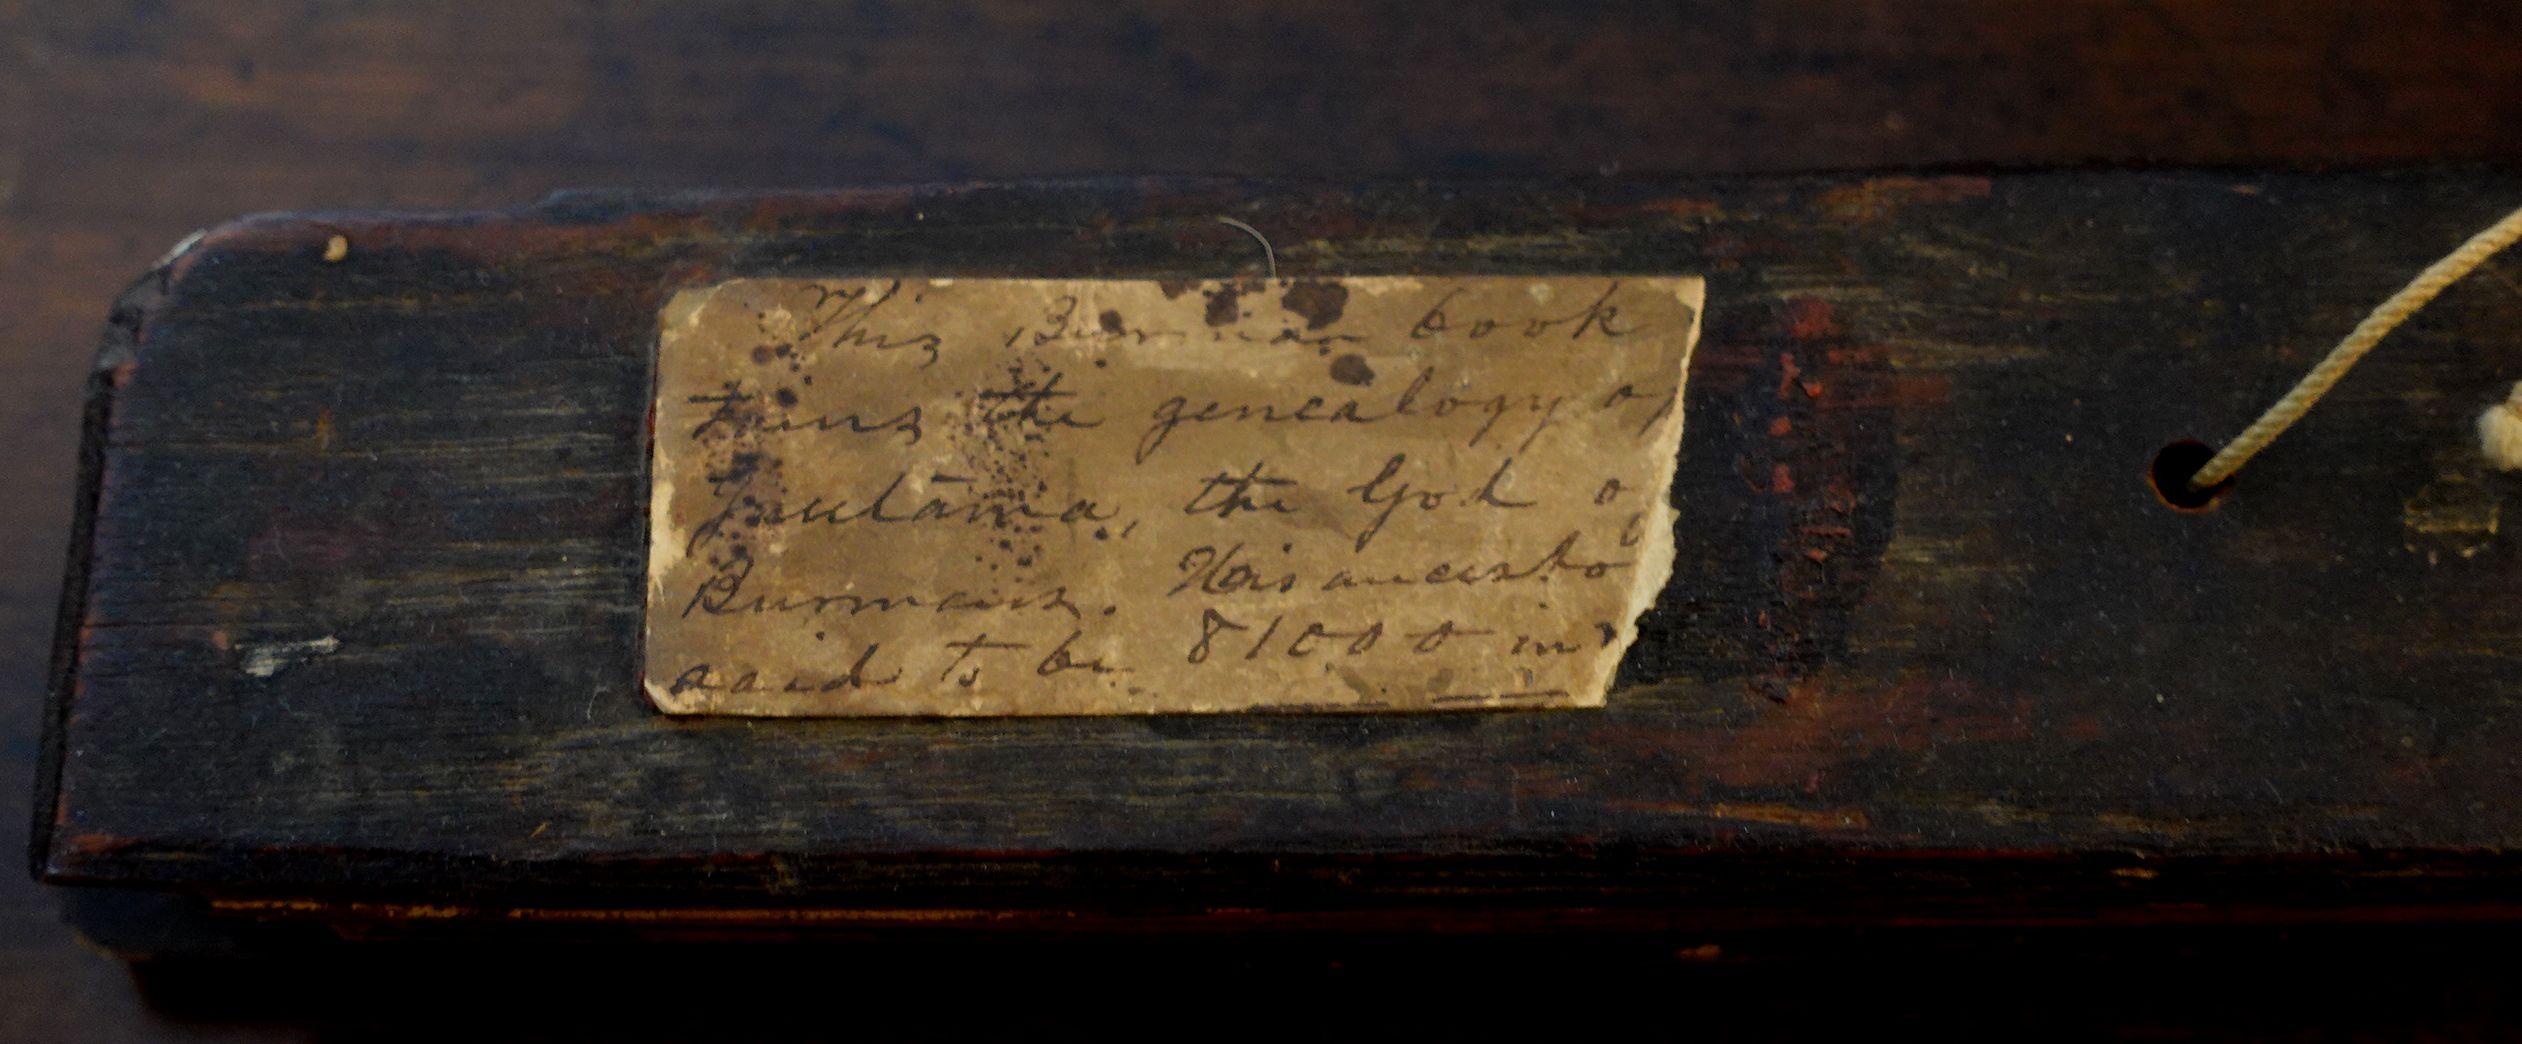 This Burman book
tains the genealogy of
Gautama, the God of
Burmans. His ancesto
said to be 81000 in